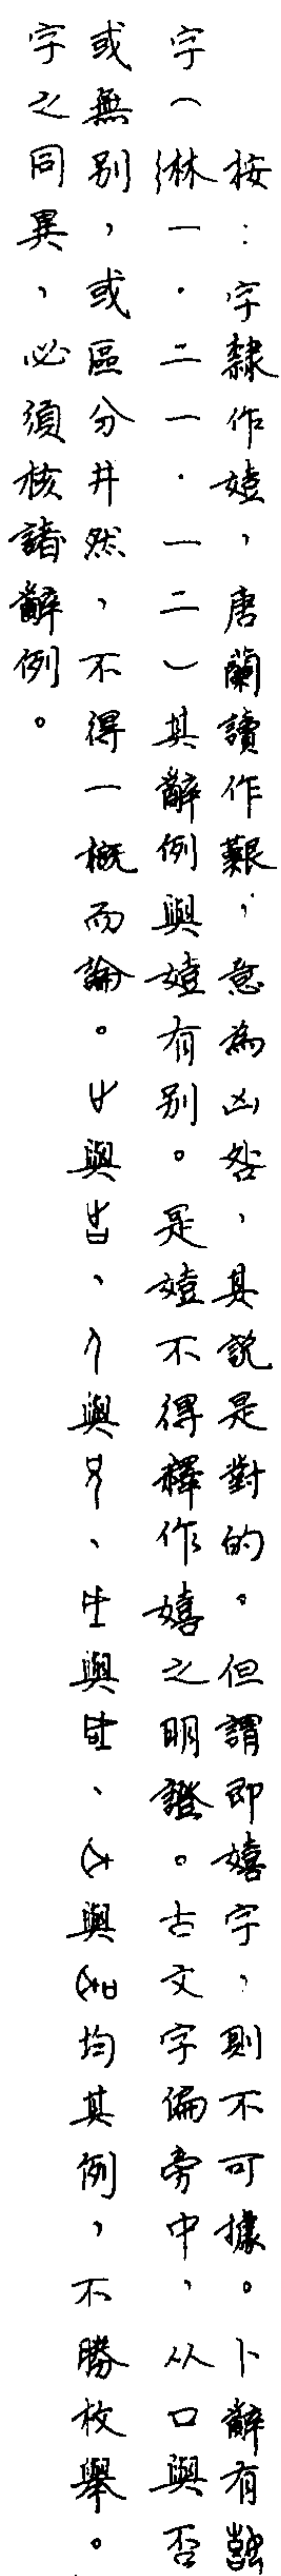 按：字隸作嬄，唐蘭讀作艱，意為凶咎，其說是對的。但謂即嬉字，則不可據。卜辭有
字（淋一·二一·一二）其辭例與嬄有別。是嬄不得釋作嬉之明證。古文字偏旁中，从口與否
或無別，或區分井然，不得一概而論。與、與、與、與均其例，不勝枚舉。
字之同異，必須核諸辭例。